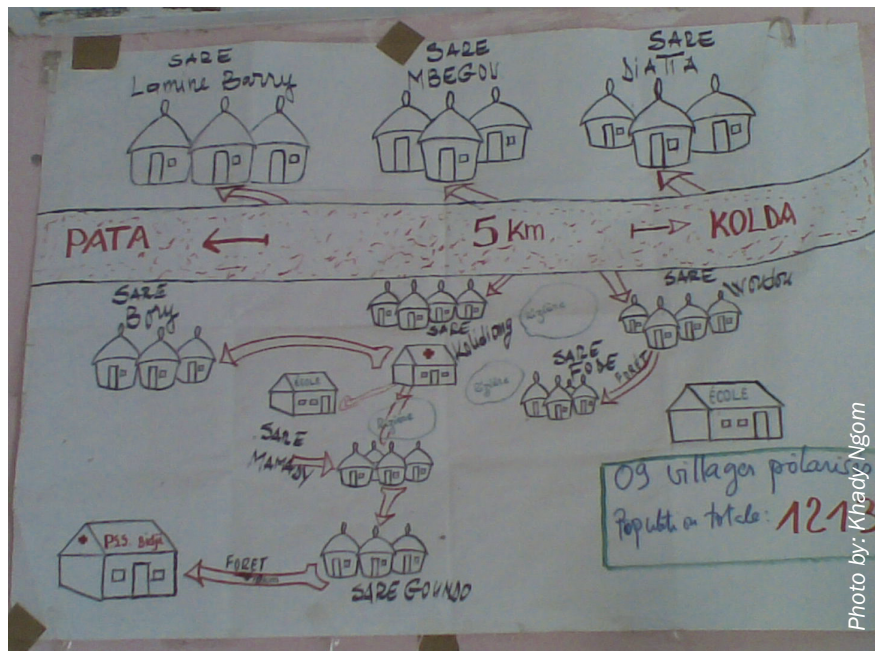 SARE
Lamine Barry
SARE
MBEGOU
SARE
DiATTA
PATA
5 Km
KOLDA
SARE
Bory
SARE
Kalidiang
Rizière
SARE
Woudou
SARE
FODE
FORET
Rizière
ÉCOLE
ÉCOLE
Rizière
SARE
MAMADY
09 villages polarisés
Population totale: 1213
P.S.S.
FORET
SARE GOUNDO
Photo by: Khady Ngom